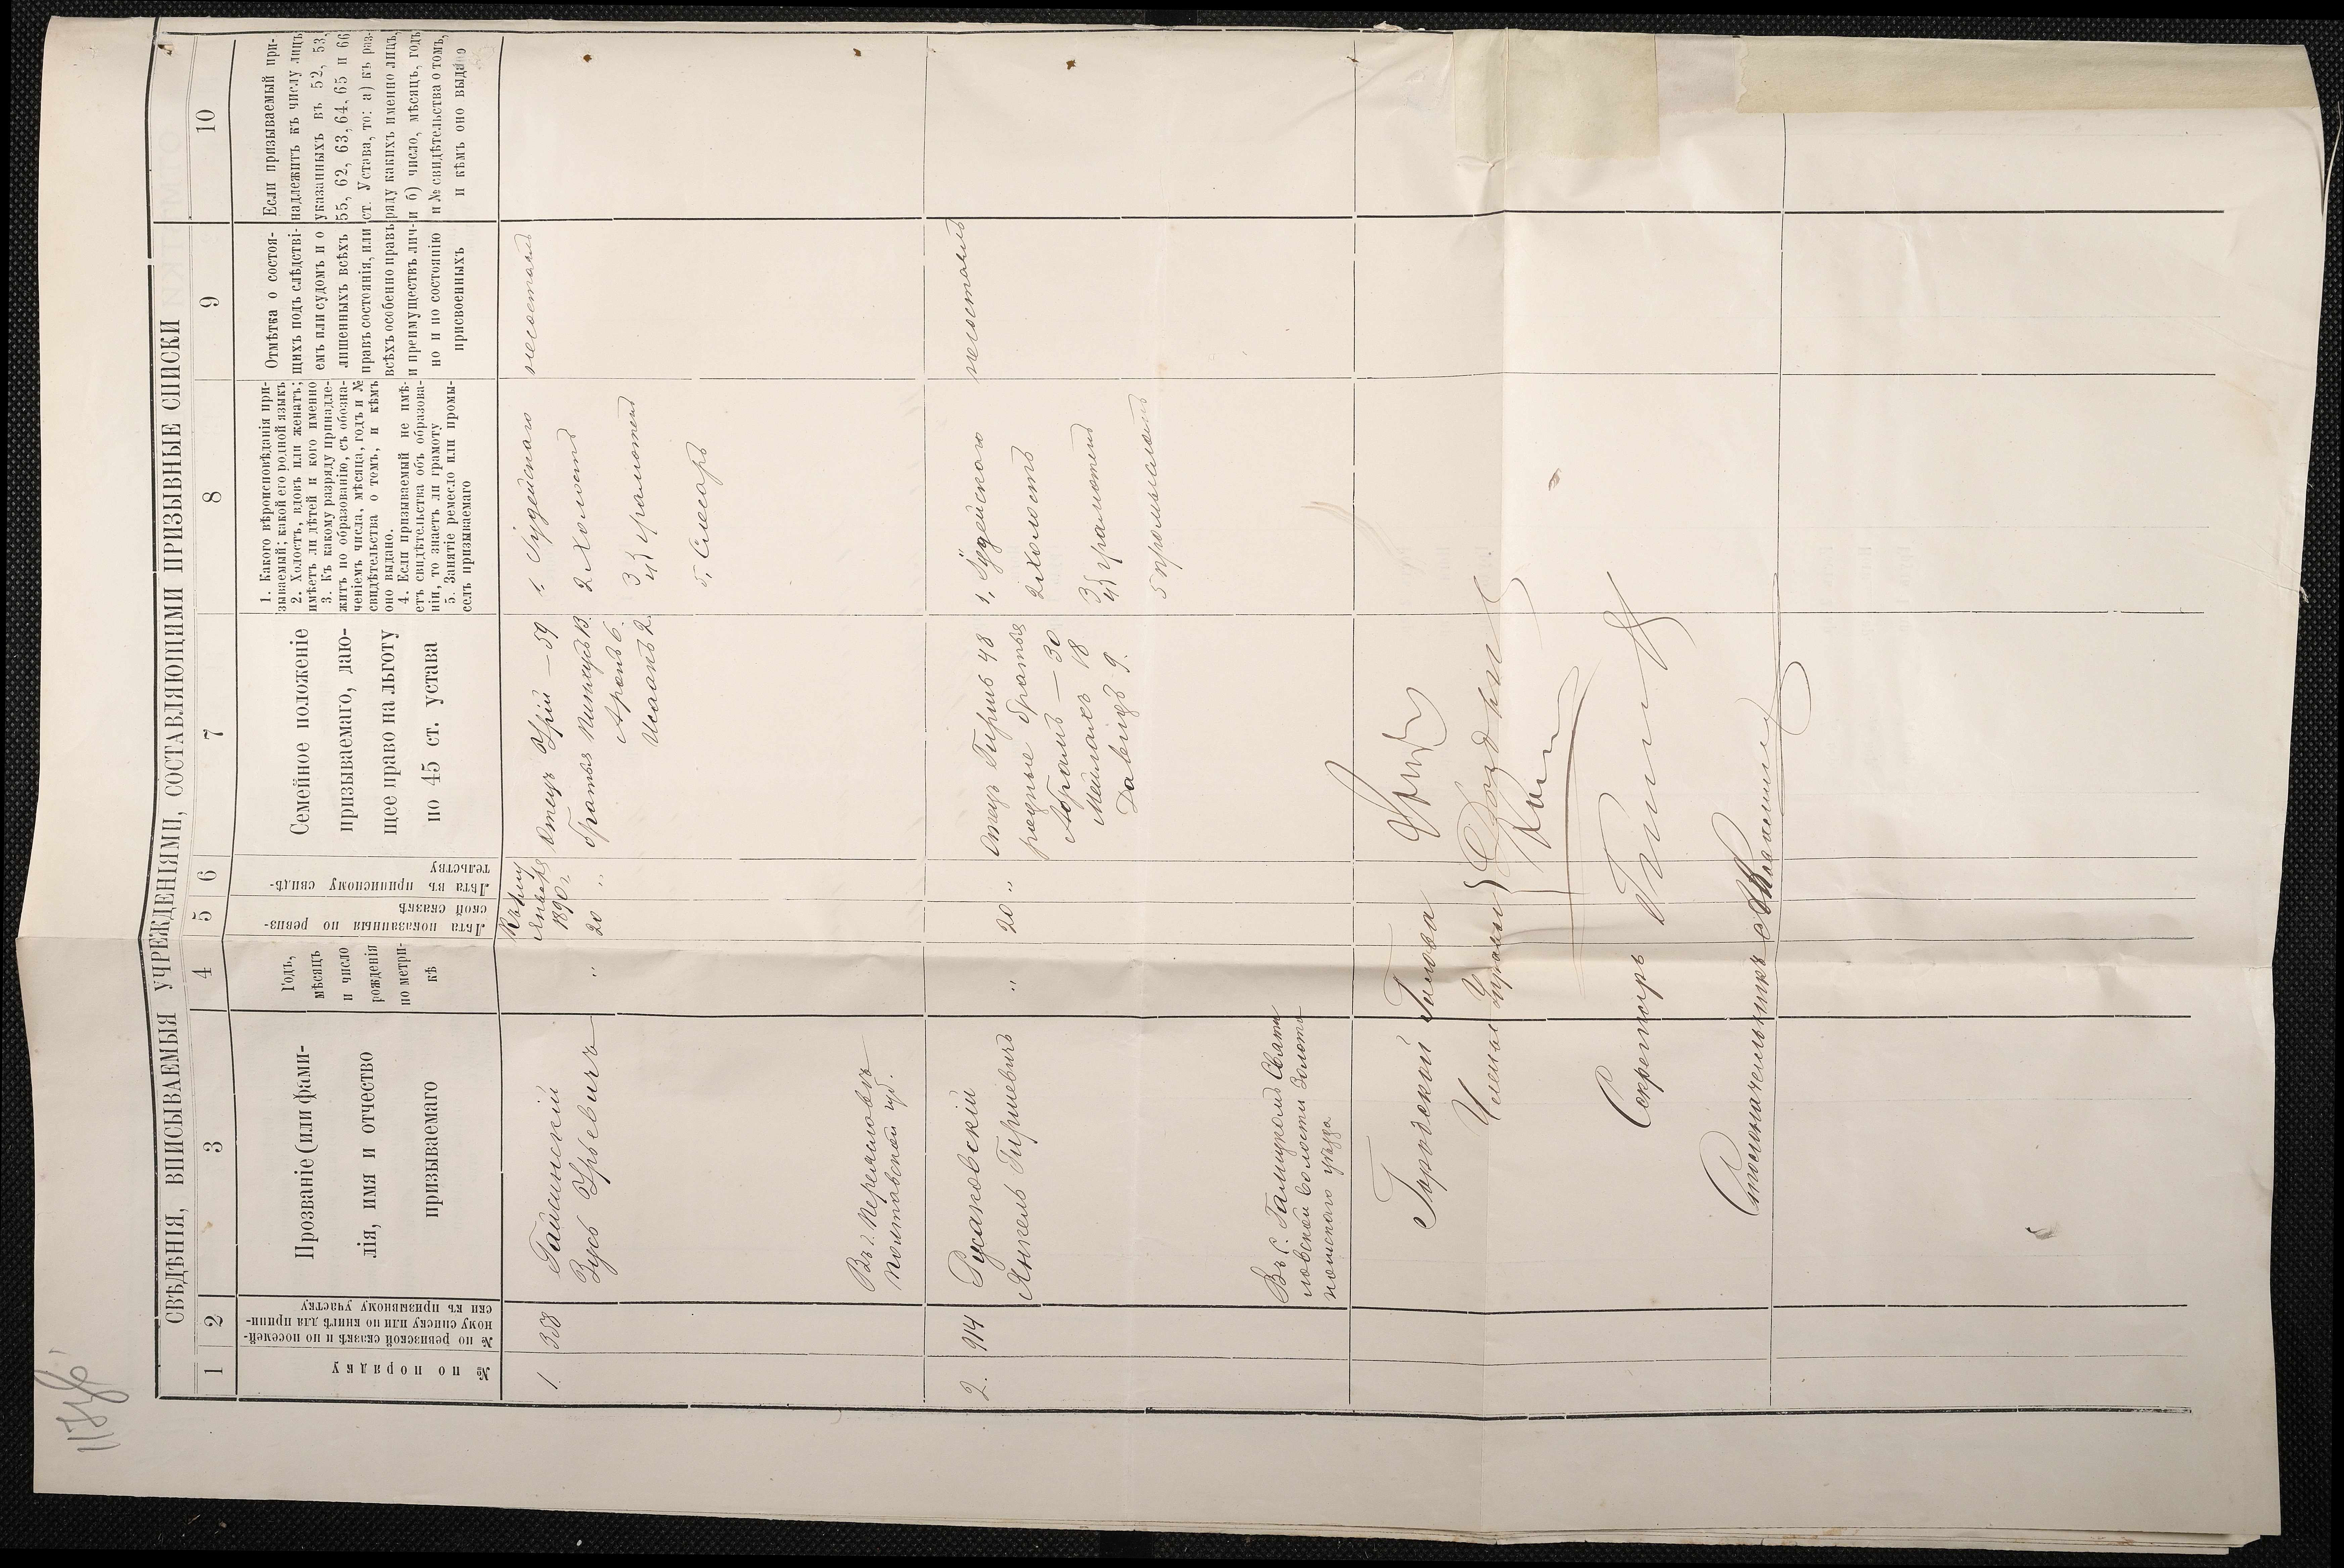 117 об.
СВѢДѢНІЯ, ВПИСЫВАЕМЫЯ УЧРЕЖДЕНІЯМИ, СОСТАВЛЯЮЩИМИ ПРИЗЫВНЫЕ СПИСКИ
1
2
3
4
5
6
7
8
9
10
№ по порядку
№ по ревизской сказкѣ и по посемей-
ному списку или по книгѣ для припи-
ски къ призывному участку
Прозваніе (или фами-
лія, имя и отчество
призываемаго
Годъ,
мѣсяцъ
и число
рожденія
по метри-
кѣ
Лѣта показанныя по ревиз-
ской сказкѣ
Лѣта въ приписному свидѣ-
тельству
Семейное положеніе
призываемаго, даю-
щее право на льготу
по 45 ст. устава
1. Какого вѣроисповѣданія при-
зываемый; какой его родной языкъ
2. Холостъ, вдовъ или женатъ;
имѣетъ ли дѣтей и кого именно
3. Къ какому разряду принадле-
житъ по образованію, съ обозна-
ченіемъ числа, мѣсяца, годъ и №
свидѣтельства о томъ, и кѣмъ
оно выдано.
4. Если призываемый не имѣ-
етъ свидѣтельства объ образова-
ніи, то знаетъ ли грамоту
5. Занятіе ремесло или промы-
селъ призываемаго
Отмѣтка о состоя-
щихъ подъ слѣдстві-
емъ или судомъ и о
лишенныхъ всѣхъ
правъ состоянія, или
всѣхъ особенно правъ
и преимуществъ лич-
но и по состоянію
присвоенныхъ
Если призываемый при-
надлежитъ къ числу лицъ
указанныхъ въ 52, 53,
55, 62, 63, 64, 65 и 66
ст. Устава, то: а) къ раз-
ряду какихъ именно лицъ,
и б) число, мѣсяцъ, годъ
и № свидѣтельства о томъ,
и кѣмъ оно выдано
1.
358
Гайсинскій
Зусь Урьевичъ
Въ г. Переяловѣ
Полтавской губ.
"
Къ 1му
Января
1890 г.
20 "
Отецъ Урій — 59
братья Пинхусъ 13.
Аронъ 6.
Исаакъ 2.
1. Іудейскаго
2 Холостъ
3
4} грамотенъ
5, Слесарь
несостоялъ
2.
914
Русаковскій
Янкель Гиршевичъ
"
20 "
Отецъ Гиршъ 48
родные братья
Абрамъ — 30
Мейлахъ 18
Давидъ 9.
1, Іудейскаго
2 Холостъ
3
4} грамотенъ
несостоялъ
Городской Голова
Члены Управы
Секретарь
Столоначальникъ